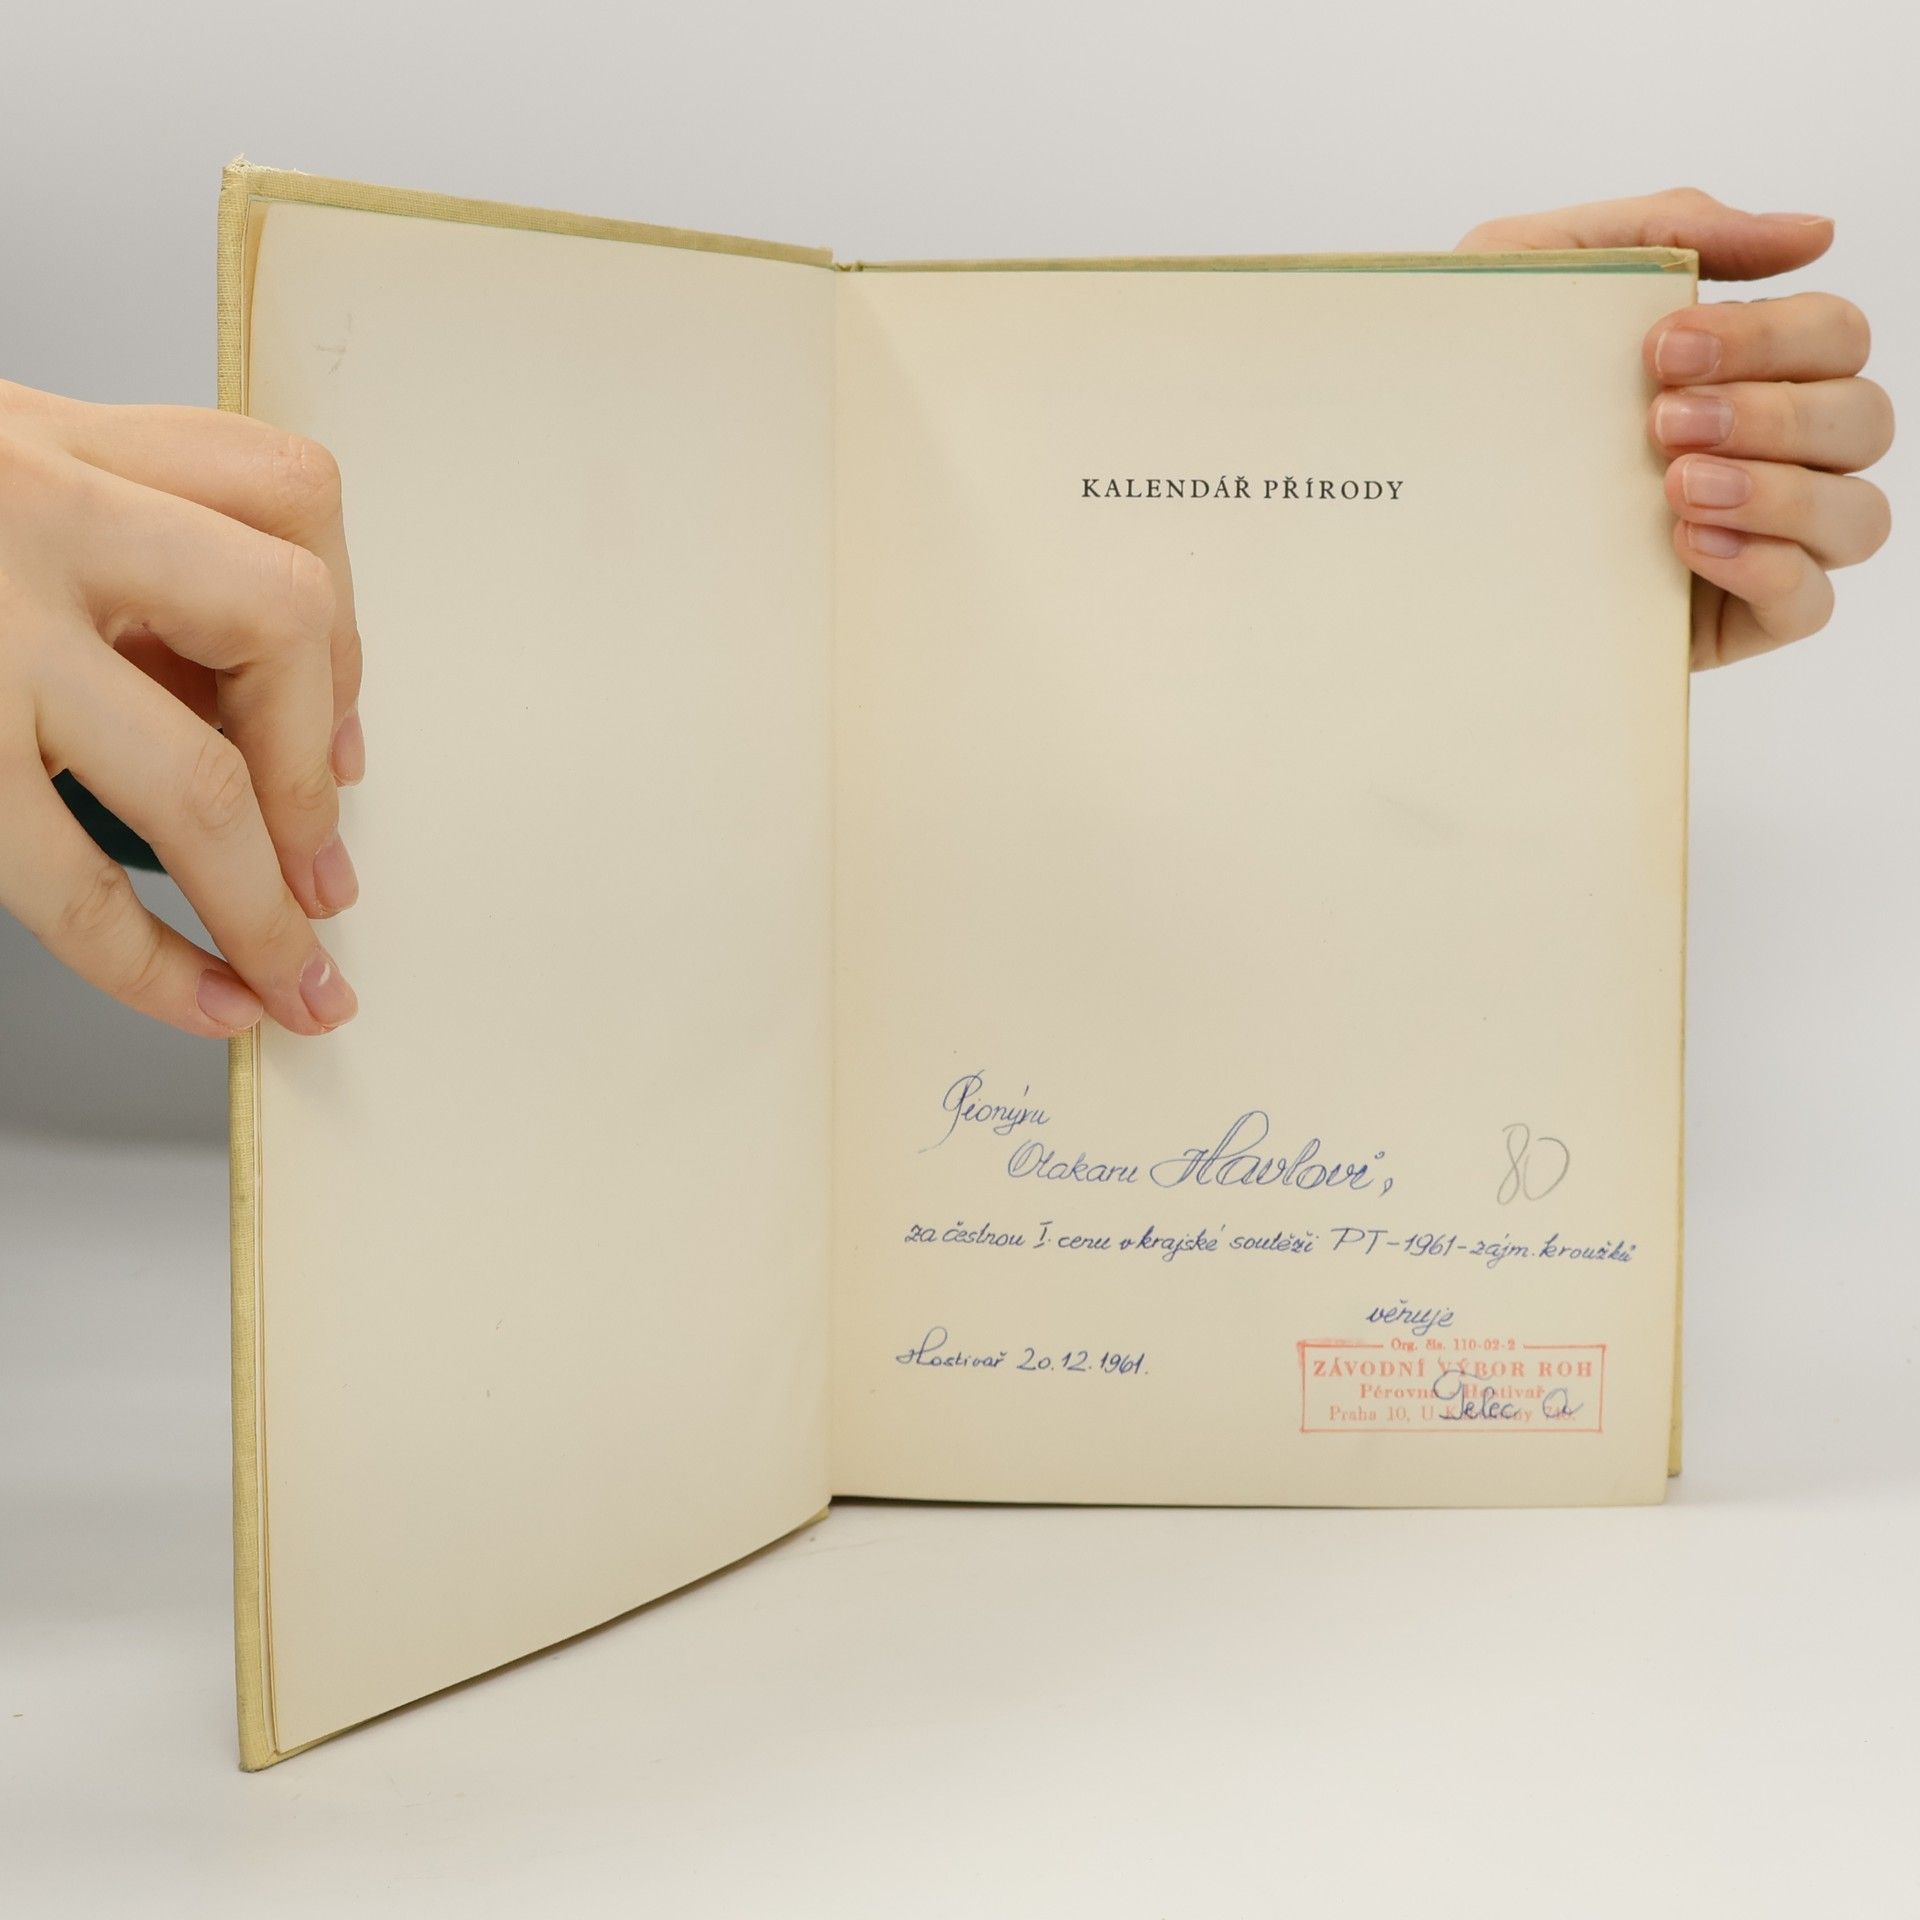 KALENDÁŘ PŘÍRODY
Pionýru
Otakaru Havlovi,
80
za čestnou I. cenu v krajské soutěži PT-1961-zájm. kroužků
věnuje
Hostivař 20.12.1961.
Org. čís. 110-02-2
ZÁVODNÍ VÝBOR ROH
Pérovna - Hostivař
Praha 10, U
Telec